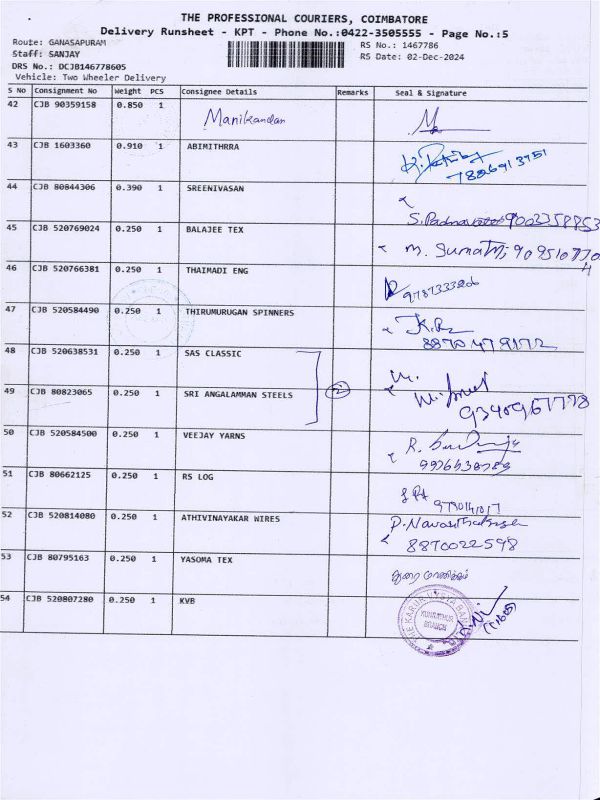 THE PROFESSIONAL COURIERS, COIMBATORE
Delivery Runsheet - KPT - Phone No.:0422-3505555 - Page No.:5
Route: GANASAPURAM
Staff: SANJAY
DRS No.: DCJB146778605
Vehicle: Two Wheeler Delivery
RS No.: 1467786
RS Date: 02-Dec-2024
S No Consignment No Weight PCS Consignee Details Remarks Seal & Signature
42 CJB 90359158 0.850 1 Manikandan
43 CJB 1603360 0.910 1 ABIMITHRRA
7826913751
44 CJB 80844306 0.390 1 SREENIVASAN
9002358853
45 CJB 520769024 0.250 1 BALAJEE TEX
M. Sumathi
46 CJB 520766381 0.250 1 THAIMADI ENG
47 CJB 520584490 0.250 1 THIRUMURUGAN SPINNERS
8870479172
48 CJB 520638531 0.250 1 SAS CLASSIC
2
49 CJB 80823065 0.250 1 SRI ANGALAMMAN STEELS
50 CJB 520584500 0.250 1 VEEJAY YARNS
51 CJB 80662125 0.250 1 RS LOG
52 CJB 520814080 0.250 1 ATHIVINAYAKAR WIRES
8870022598
53 CJB 80795163 0.250 1 YASOMA TEX
துரை மாணிக்கம்
54 CJB 520807280 0.250 1 KVB
THE KARUR VYSYA BANK
BRANCH